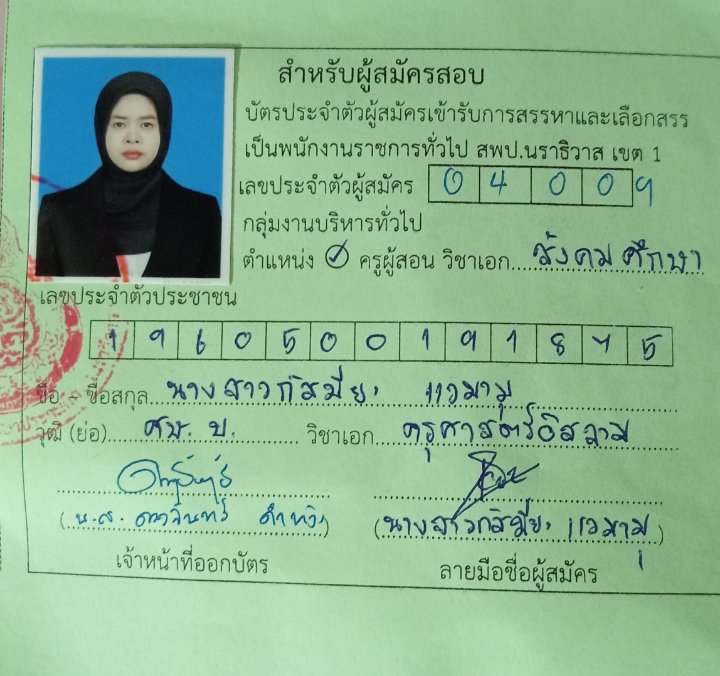 สำหรับผู้สมัครสอบ
บัตรประจำตัวผู้สมัครเข้ารับการสรรหาและเลือกสรร
เป็นพนักงานราชการทั่วไป สพป.นราธิวาส เขต 1
เลขประจำตัวผู้สมัคร 04009
กลุ่มงานบริหารทั่วไป
ตำแหน่ง ✓ ครูผู้สอน วิชาเอก....สังคมศึกษา
เลขประจำตัวประชาชน
1 9 6 0 5 0 0 1 9 1 8 4 5
ชื่อ – ชื่อสกุล...นางสาวกัสมียะ แวมามุ
วุฒิ (ย่อ)....ศษ.บ. วิชาเอก....ครุศาสตร์อิสลาม
(น.ส.
(นางสาวกัสมียะ แวมามุ)
เจ้าหน้าที่ออกบัตร
ลายมือชื่อผู้สมัคร